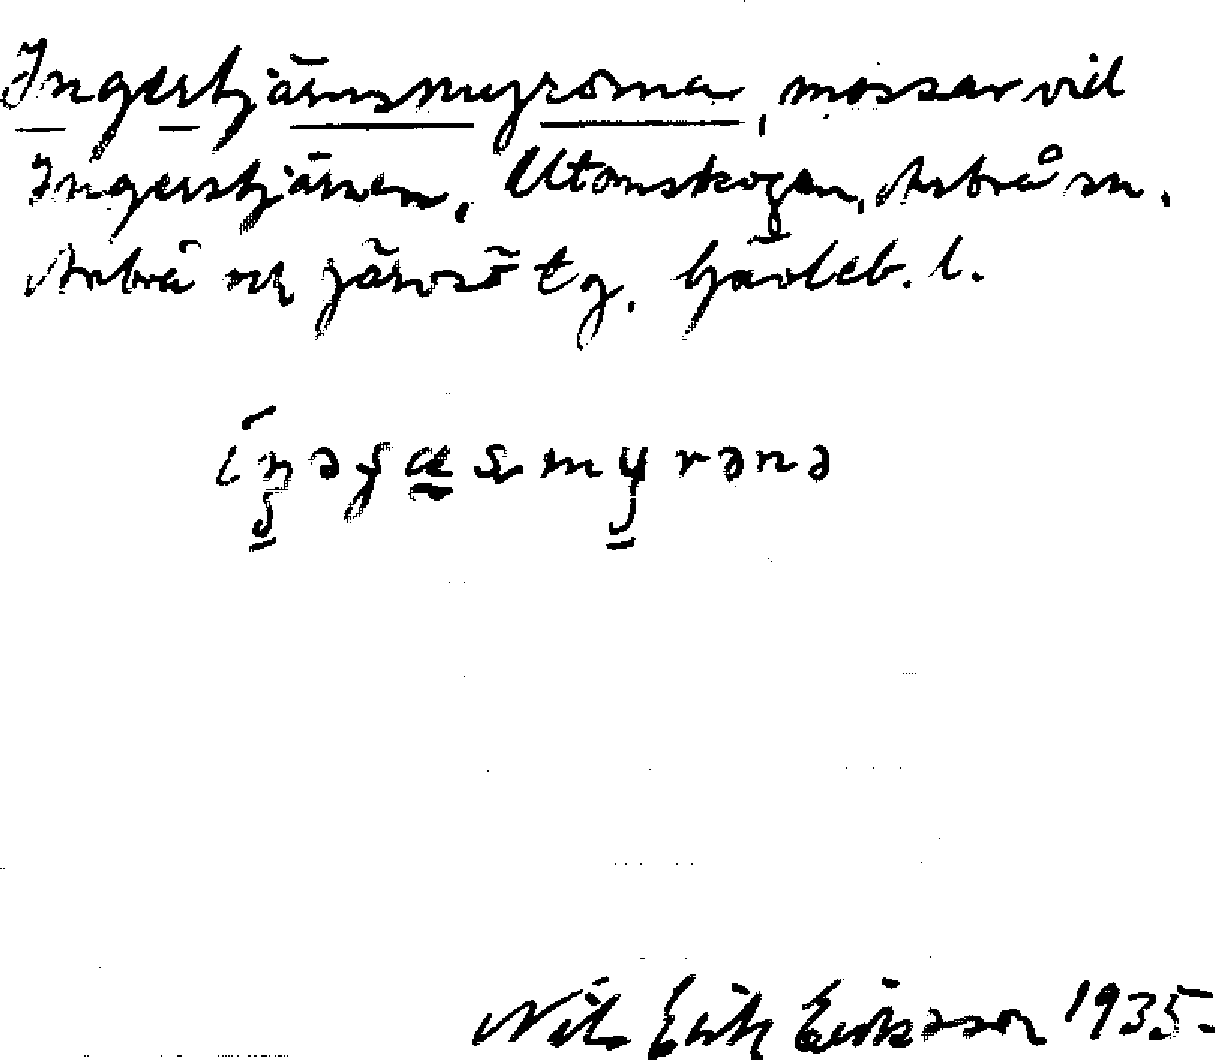 Ingerstjärnsmyrorna, mossar vid
Ingerstjärnen, Utomskogen, Arbrå sn.
Arbrå och Järvsö tg. Gävleb. l.
Nils Erik Eriksson 1935.